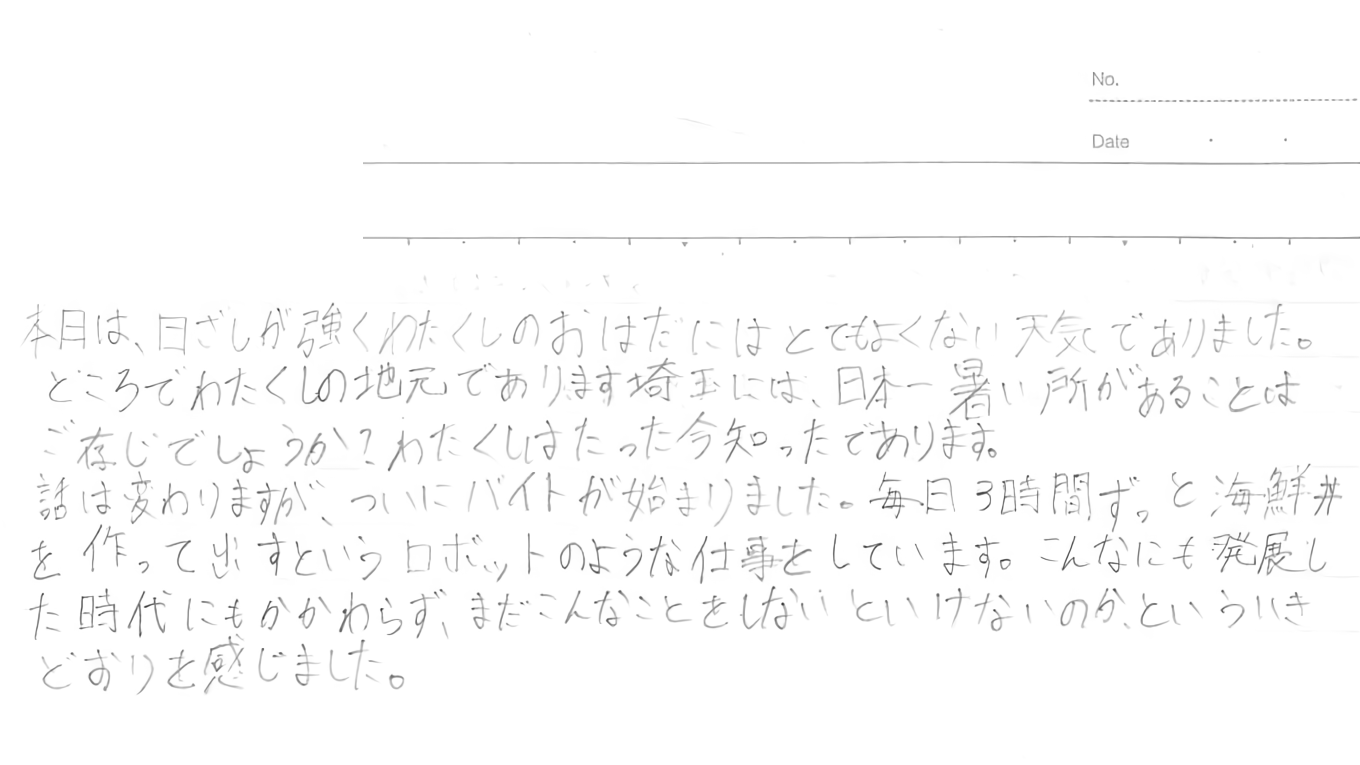 No.
Date
本日は、日ざしが強くわたくしのおはだにはとてもよくない天気でありました。
ところでわたくしの地元であります埼玉には、日本一暑い所があることは
ご存じでしょうか?わたくしはたった今知ったであります。
話は変わりますが、ついにバイトが始まりました。毎日3時間ずっと海鮮丼
を作って出すというロボットのような仕事をしています。こんなにも発展し
た時代にもかかわらず、まだこんなことをしないといけないのか、といういき
どおりを感じました。